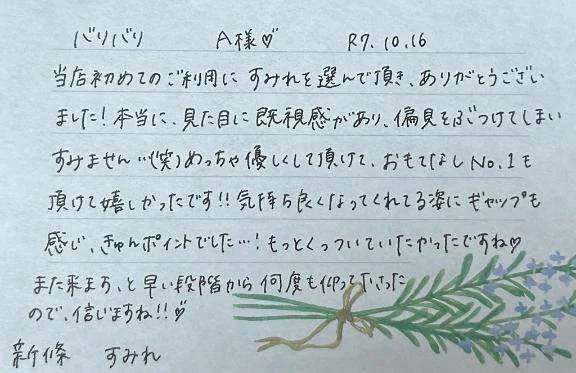 バリバリ A様♡ R7.10.16
当店初めてのご利用に すみれを選んで頂き、ありがとうござい
ました!本当に、見た目に既視感があり、偏見をぶつけてしまい
すみません…(笑)めっちゃ優しくして頂けて、おもてなしNo.1も
頂けて嬉しかったです!!気持ち良くなってくれてる姿にギャップも
感じ、きゅんポイントでした…!もっとくっついていたかったですね♡
また来ます、と早い段階から何度も仰って下さった
ので、信じますね!!♡
新條 すみれ